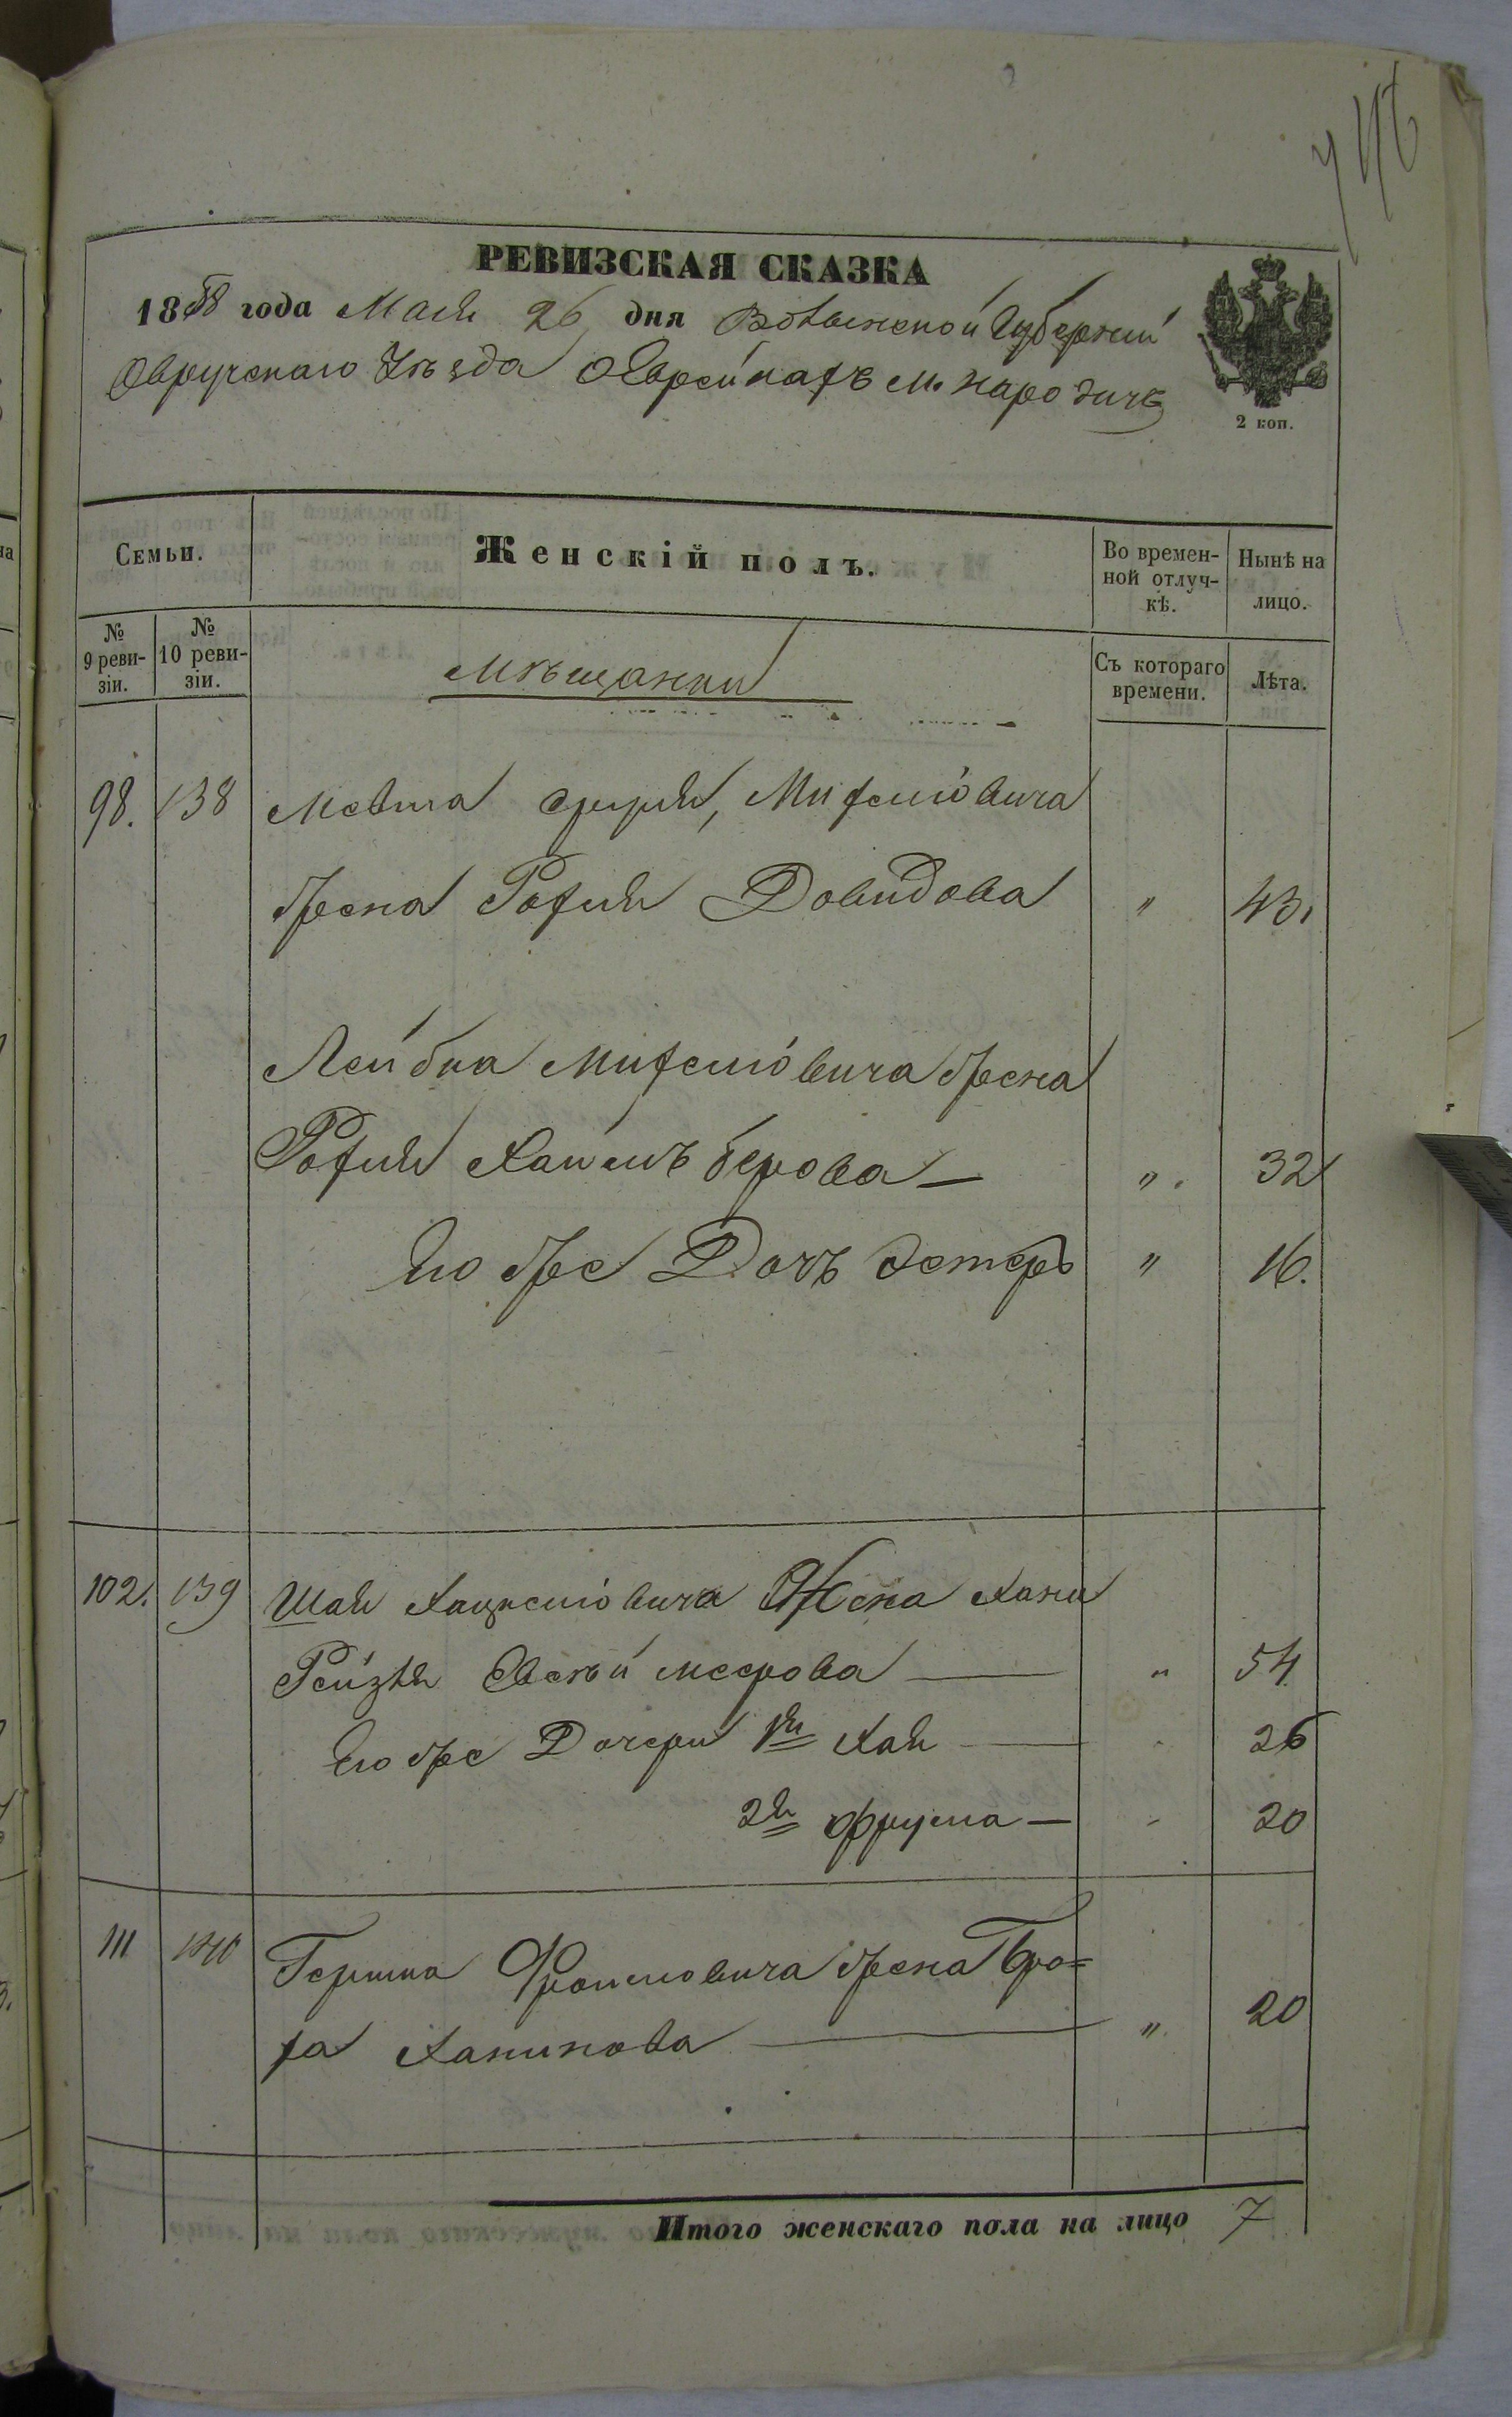 РЕВИЗСКАЯ СКАЗКА
1858 года Мая 26 дня Волынской Губерніи
Овручскаго Уѣзда о Еврейкахъ м. Народичъ
2 коп.
Семьи.
Женскій полъ.
Во времен-
ной отлуч-
кѣ.
Нынѣ на
лицо.
№
9 реви-
зіи.
№
10 реви-
зіи.
Мѣщанки
Съ котораго
времени.
Лѣта.
98. 138 Мевша Михелiовича
жена Рохля Довидова " 43.
Лейбка Михелiовича жена
Рохля Хаимъ берова — ". 32
Его же Дочь Эстеръ " 16.
102. 139 Шаи Хацкелiовича Жена Хана
Рейзя меерова — " 54
Его же Дочери 1я Хая — 26
2я Фрума — 20
111 140 Гершка Фроимовича жена Бро=
ха Ханинова — " 20
Итого женскаго пола на лицо 7